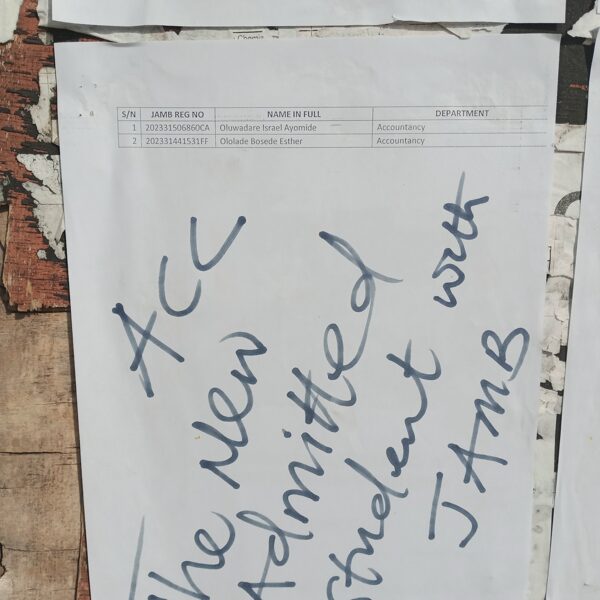 Chemis
S/N JAMB REG NO NAME IN FULL DEPARTMENT
1 202331506860CA Oluwadare Israel Ayomide Accountancy
2 202331441531FF Ololade Bosede Esther Accountancy
ACC
The New
Admitted
Student with
JAMB